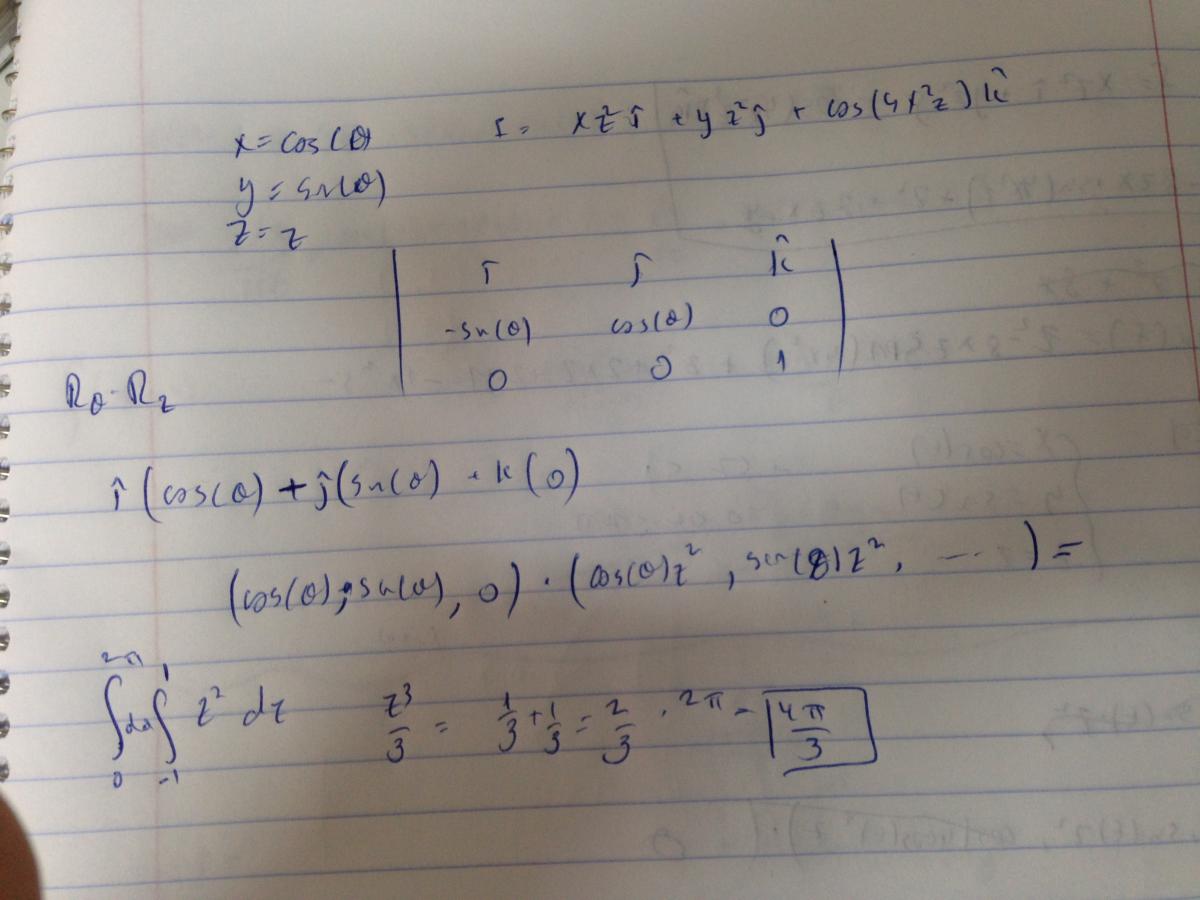 x = cos(θ)
I = xz² î + yz² ĵ + cos(4x²z) k̂
y = sin(θ)
z = z
| î ĵ k̂ |
| -sin(θ) cos(θ) 0 |
| 0 0 1 |
Rθ · Rz
î (cos(θ) + ĵ(sin(θ) + k(0)
(cos(θ), sin(θ), 0) · (cos(θ)z², sin(θ)z², ....) =
∫₀^2π dθ ∫₋₁^1 z² dz z³/3 = 1/3 + 1/3 = 2/3 · 2π = 4π/3